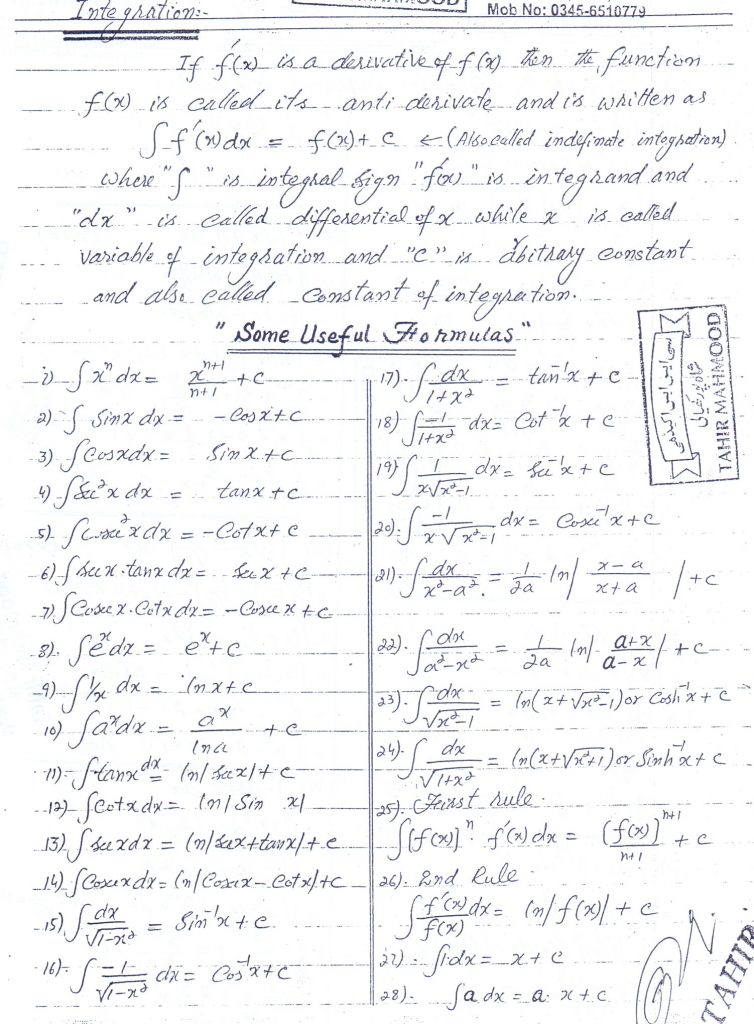 Integration:-
Mob No: 0345-6510779
If f'(x) is a derivative of f(x) then the function
f(x) is called its anti derivate and is written as
∫f'(x)dx = f(x)+c ← (Also called indefinate integration)
where "∫" is integral sign "f'(x)" is integrand and
"dx" is called differential of x while x is called
variable of integration and "c" is arbitrary constant
and also called constant of integration.
"Some Useful Formulas"
1) ∫x^n dx = x^(n+1)/(n+1) + c
2) ∫Sinx dx = -Cosx+c
3) ∫Cosxdx = Sinx+c
4) ∫Sec²x dx = tanx+c
5) ∫Cosec²x dx = -Cotx+c
6) ∫secx.tanx dx = secx+c
7) ∫Cosecx.Cotx dx = -Cosecx+c
8). ∫e^x dx = e^x+c
9) ∫1/x dx = lnx+c
10) ∫a^x dx = a^x/lna + c
11) ∫tanx dx = ln|secx|+c
12) ∫Cotx dx = ln|Sin x|
13) ∫secx dx = ln|secx+tanx|+c
14) ∫Cosecx dx = ln|Cosecx-Cotx|+c
15) ∫dx/√(1-x²) = Sin⁻¹x+c
16) ∫-1/√(1-x²) dx = Cos⁻¹x+c
17). ∫dx/(1+x²) = tan⁻¹x+c
18) ∫-1/(1+x²) dx = Cot⁻¹x+c
19) ∫1/(x√(x²-1)) dx = Sec⁻¹x+c
20). ∫-1/(x√(x²-1)) dx = Cosec⁻¹x+c
21). ∫dx/(x²-a²). = 1/2a ln|(x-a)/(x+a)|+c
22). ∫dx/(a²-x²) = 1/2a ln|(a+x)/(a-x)|+c
23). ∫dx/√(x²-1) = ln(x+√(x²-1)) or Cosh⁻¹x+c
24). ∫dx/√(1+x²) = ln(x+√(x²+1)) or Sinh⁻¹x+c
25). First rule.
∫[f(x)]^n. f'(x)dx = [f(x)]^(n+1)/(n+1) + c
26). 2nd Rule
∫f'(x)/f(x) dx = ln|f(x)|+c
27). ∫1dx = x+c
28). ∫a dx = a.x+c
TAHIR MAHMOOD
TAHIR